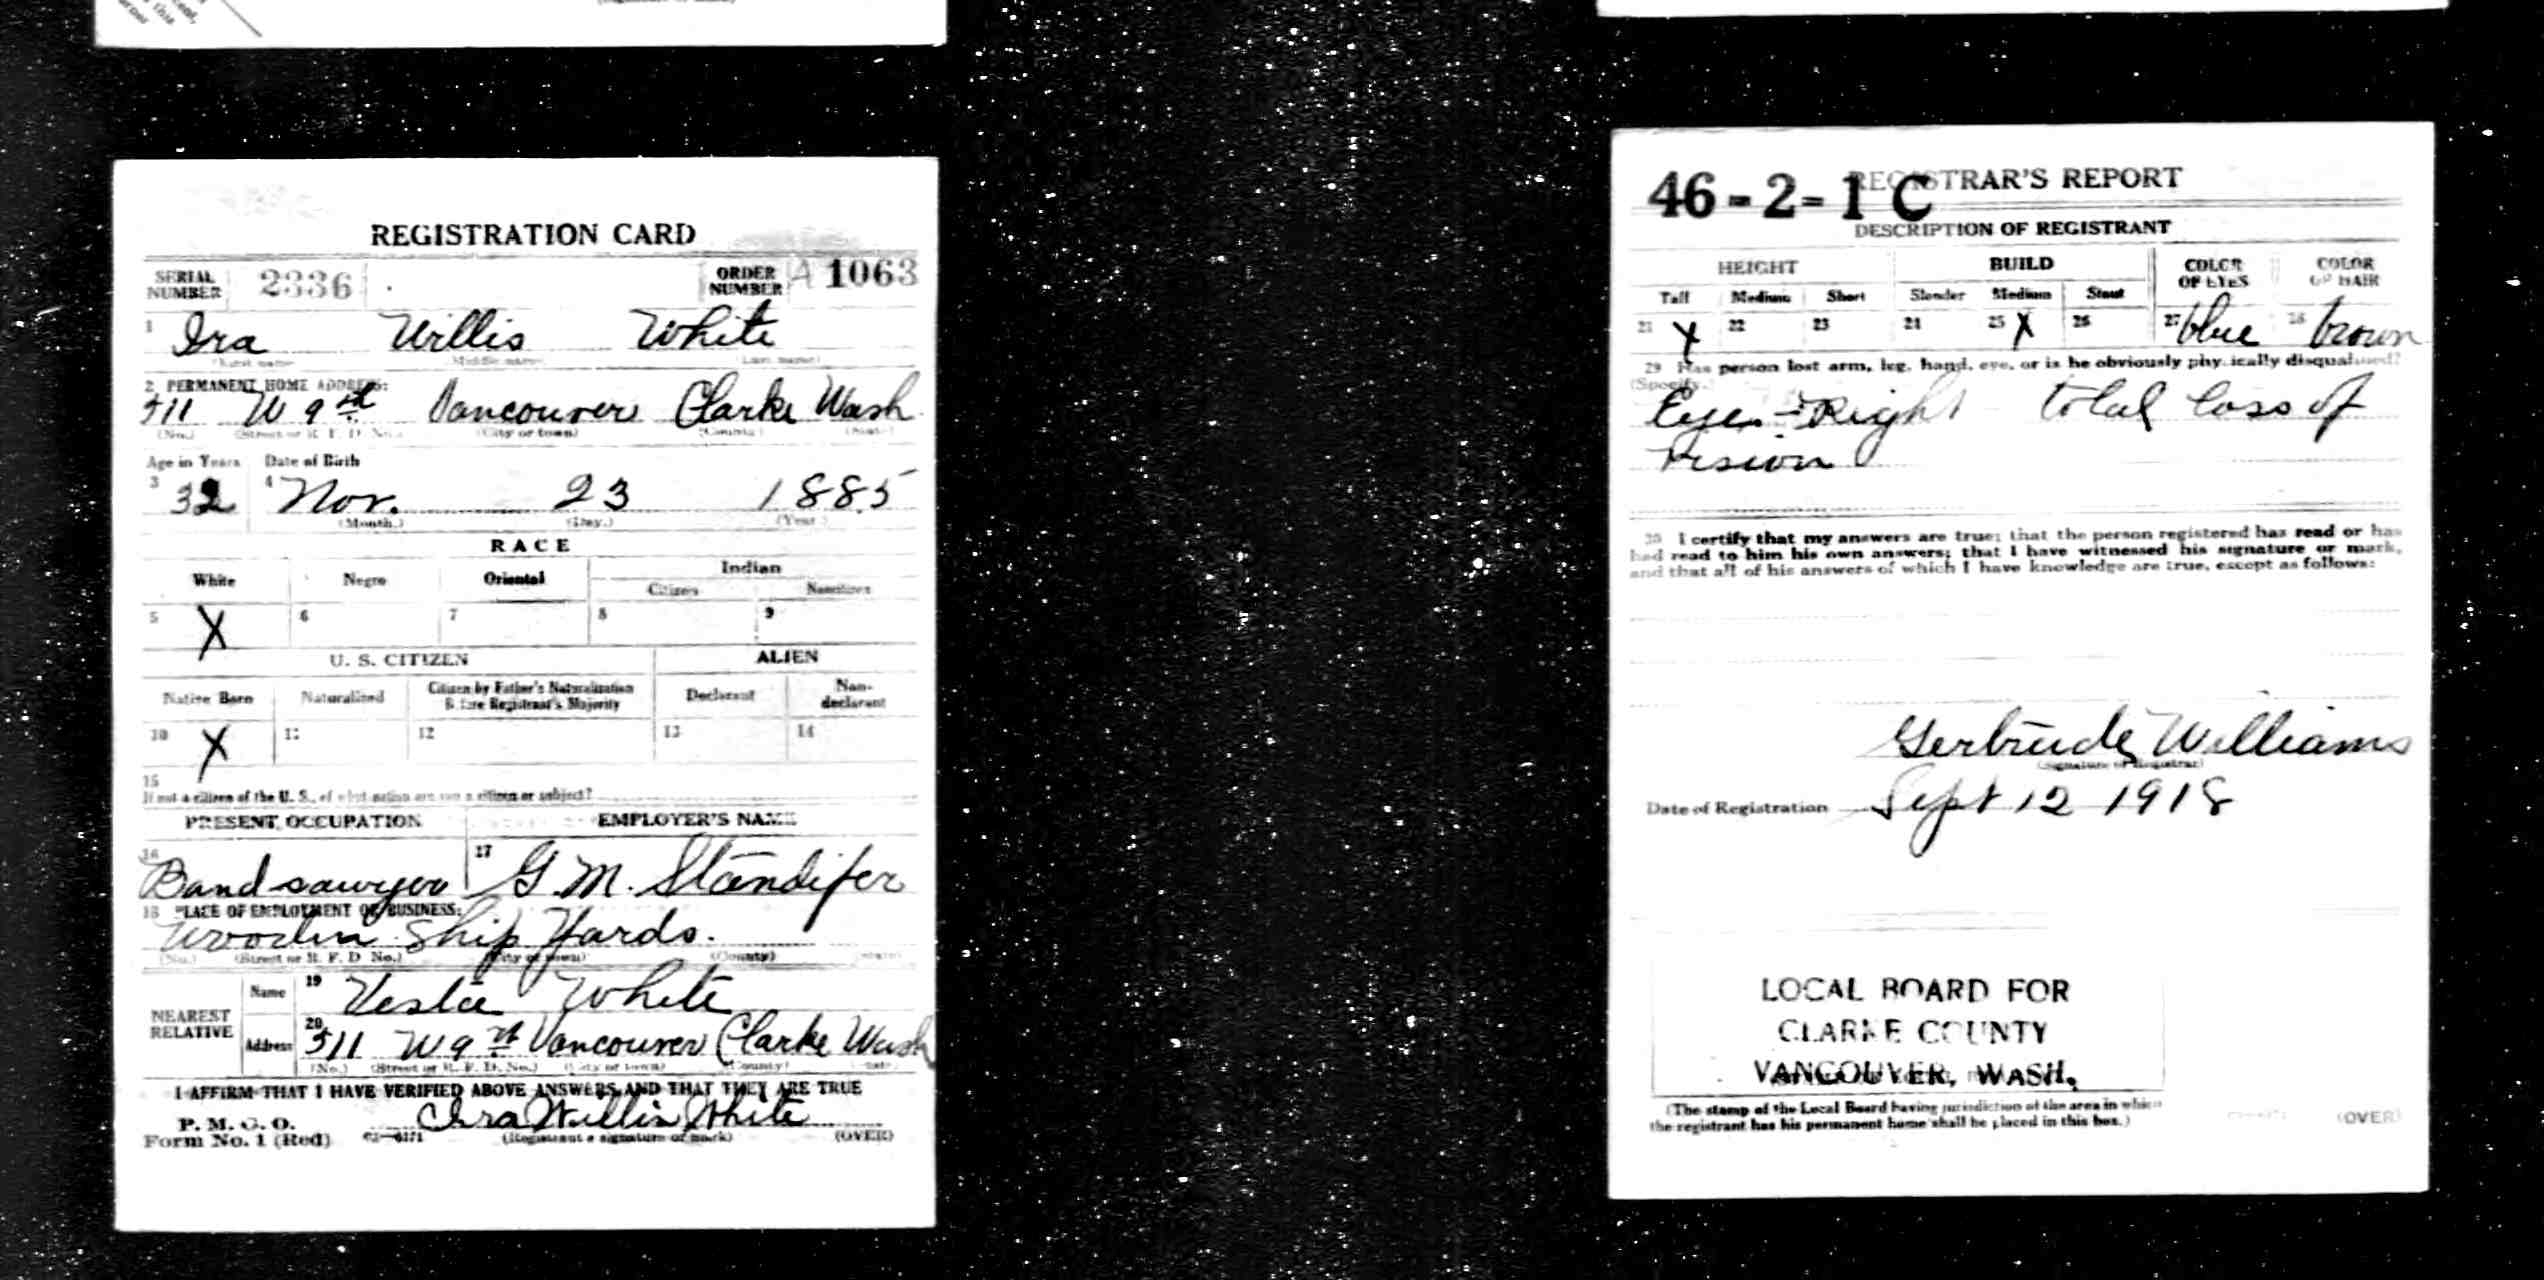 REGISTRATION CARD
SERIAL NUMBER 2336 ORDER NUMBER A 1063
1 Ira Willis White
(First name) (Middle name) (Last name)
2 PERMANENT HOME ADDRESS:
511 W 9th Vancouver Clarke Wash
(No.) (Street or R. F. D. No.) (City or town) (County) (State)
Age in Years Date of Birth
3 32 4 Nov. 23 1885
(Month.) (Day.) (Year.)
RACE
White Negro Oriental Indian
Citizen Noncitizen
5 X 6 7 8 9
U. S. CITIZEN ALIEN
Native Born Naturalized Citizen by Father's Naturalization Before Registrant's Majority Declarant Non-declarant
10 X 11 12 13 14
15
If not a citizen of the U. S., of what nation are you a citizen or subject?
PRESENT OCCUPATION EMPLOYER'S NAME
16 Band sawyer 17 G. M. Standifer
18 PLACE OF EMPLOYMENT OR BUSINESS:
Wooden Ship Yards.
(No.) (Street or R. F. D. No.) (City or town) (County) (State)
NEAREST RELATIVE Name 19 Vesta White
Address 20 511 W 9th Vancouver Clarke Wash
(No.) (Street or R. F. D. No.) (City or town) (County) (State)
I AFFIRM THAT I HAVE VERIFIED ABOVE ANSWERS AND THAT THEY ARE TRUE
P. M. G. O.
Form No. 1 (Red) 03—6171 Ira Willis White
(Registrant's signature or mark) (OVER)
46-2-1 C
REGISTRAR'S REPORT
DESCRIPTION OF REGISTRANT
HEIGHT BUILD COLOR OF EYES COLOR OF HAIR
Tall Medium Short Slender Medium Stout
21 X 22 23 24 25 X 26 27 blue 28 brown
29 Has person lost arm, leg, hand, eye, or is he obviously physically disqualified?
(Specify.)
Eye - Right total loss of
Vision
30 I certify that my answers are true; that the person registered has read or has
had read to him his own answers; that I have witnessed his signature or mark,
and that all of his answers of which I have knowledge are true, except as follows:
Gertrude Williams
(Signature of Registrar)
Date of Registration Sept 12 1918
LOCAL BOARD FOR
CLARKE COUNTY
VANCOUVER, WASH.
(The stamp of the Local Board having jurisdiction of the area in which
the registrant has his permanent home shall be placed in this box.)
(OVER)